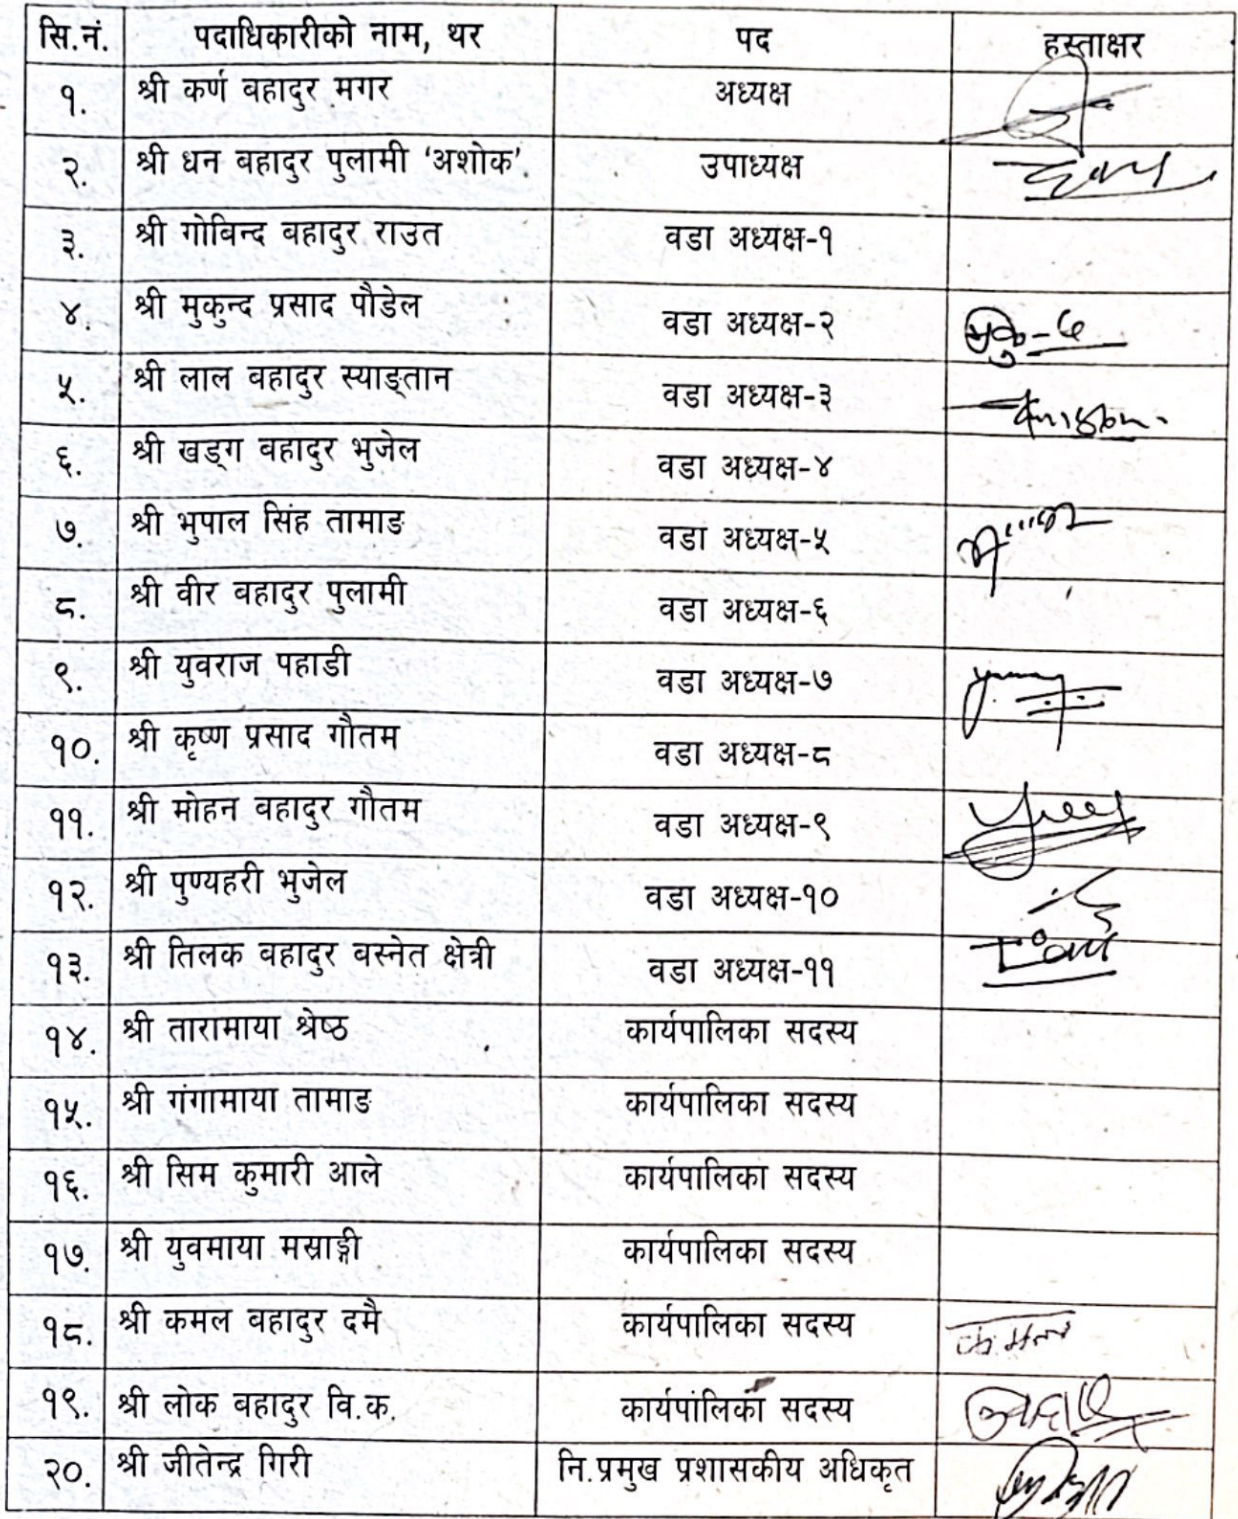 सि.नं. पदाधिकारीको नाम, थर पद हस्ताक्षर
१. श्री कर्ण बहादुर मगर अध्यक्ष
२. श्री धन बहादुर पुलामी ‘अशोक’ उपाध्यक्ष
३. श्री गोविन्द बहादुर राउत वडा अध्यक्ष-१
४. श्री मुकुन्द प्रसाद पौडेल वडा अध्यक्ष-२
५. श्री लाल वहादुर स्याङ्तान वडा अध्यक्ष-३
६. श्री खड्ग वहादुर भुजेल वडा अध्यक्ष-४
७. श्री भुपाल सिंह तामाङ वडा अध्यक्ष-५
८. श्री वीर बहादुर पुलामी वडा अध्यक्ष-६
९. श्री युवराज पहाडी वडा अध्यक्ष-७
१०. श्री कृष्ण प्रसाद गौतम वडा अध्यक्ष-८
११. श्री मोहन वहादुर गौतम वडा अध्यक्ष-९
१२. श्री पुण्यहरी भुजेल वडा अध्यक्ष-१०
१३. श्री तिलक वहादुर वस्नेत क्षेत्री वडा अध्यक्ष-११
१४. श्री तारामाया श्रेष्ठ कार्यपालिका सदस्य
१५. श्री गंगामाया तामाङ कार्यपालिका सदस्य
१६. श्री सिम कुमारी आले कार्यपालिका सदस्य
१७. श्री युवमाया मस्राङ्गी कार्यपालिका सदस्य
१८. श्री कमल वहादुर दमै कार्यपालिका सदस्य कमल
१९. श्री लोक बहादुर वि.क. कार्यपालिका सदस्य
२०. श्री जीतेन्द्र गिरी नि.प्रमुख प्रशासकीय अधिकृत